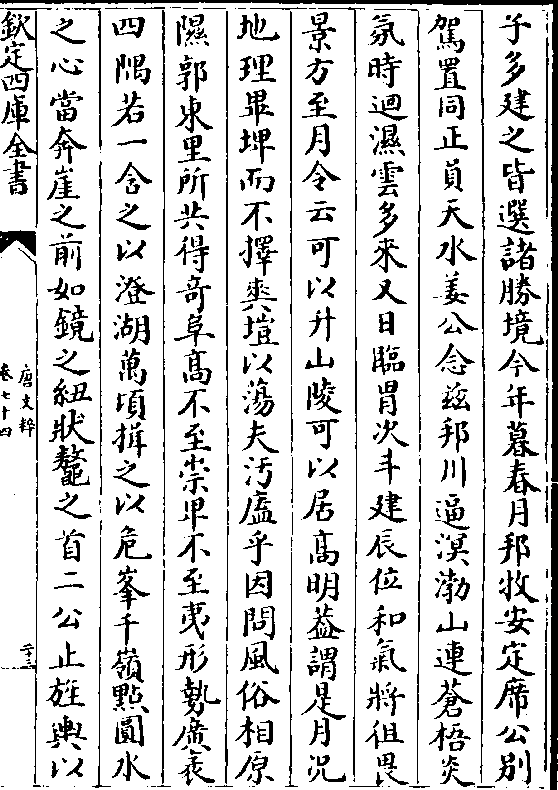 子多建之皆選諸勝境今年暮春月邦牧安定席公別
駕置同正員天水姜公念兹邦川逼溟渤山連蒼梧炎
氛時迴濕雲多來又日臨胃次斗建辰位和氣將徂畏
景方至月令云可以升山陵可以居髙明葢謂是月况
地理卑埤而不擇爽塏以蕩夫汚廬乎因問風俗相原
隰郭東里所共得竒阜髙不至崇卑不至夷形勢廣袤
四隅若一含之以澄湖萬頃揖之以危峯千嶺點圓水
之心當奔崖之前如鏡之紐狀鼇之首二公止旌輿以
欽定四庫全書
唐文粹
卷七十四
二十三